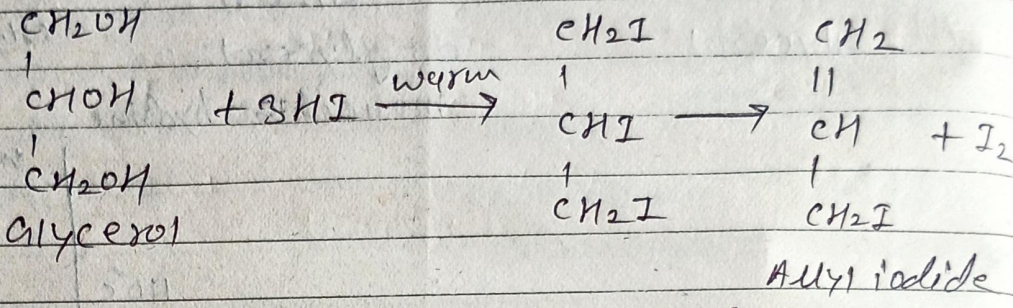 CH2OH CH2I CH2
| | ||
CHOH + 3HI warm → CHI → CH + I2
| | |
CH2OH CH2I CH2I
Glycerol
Allyl iodide